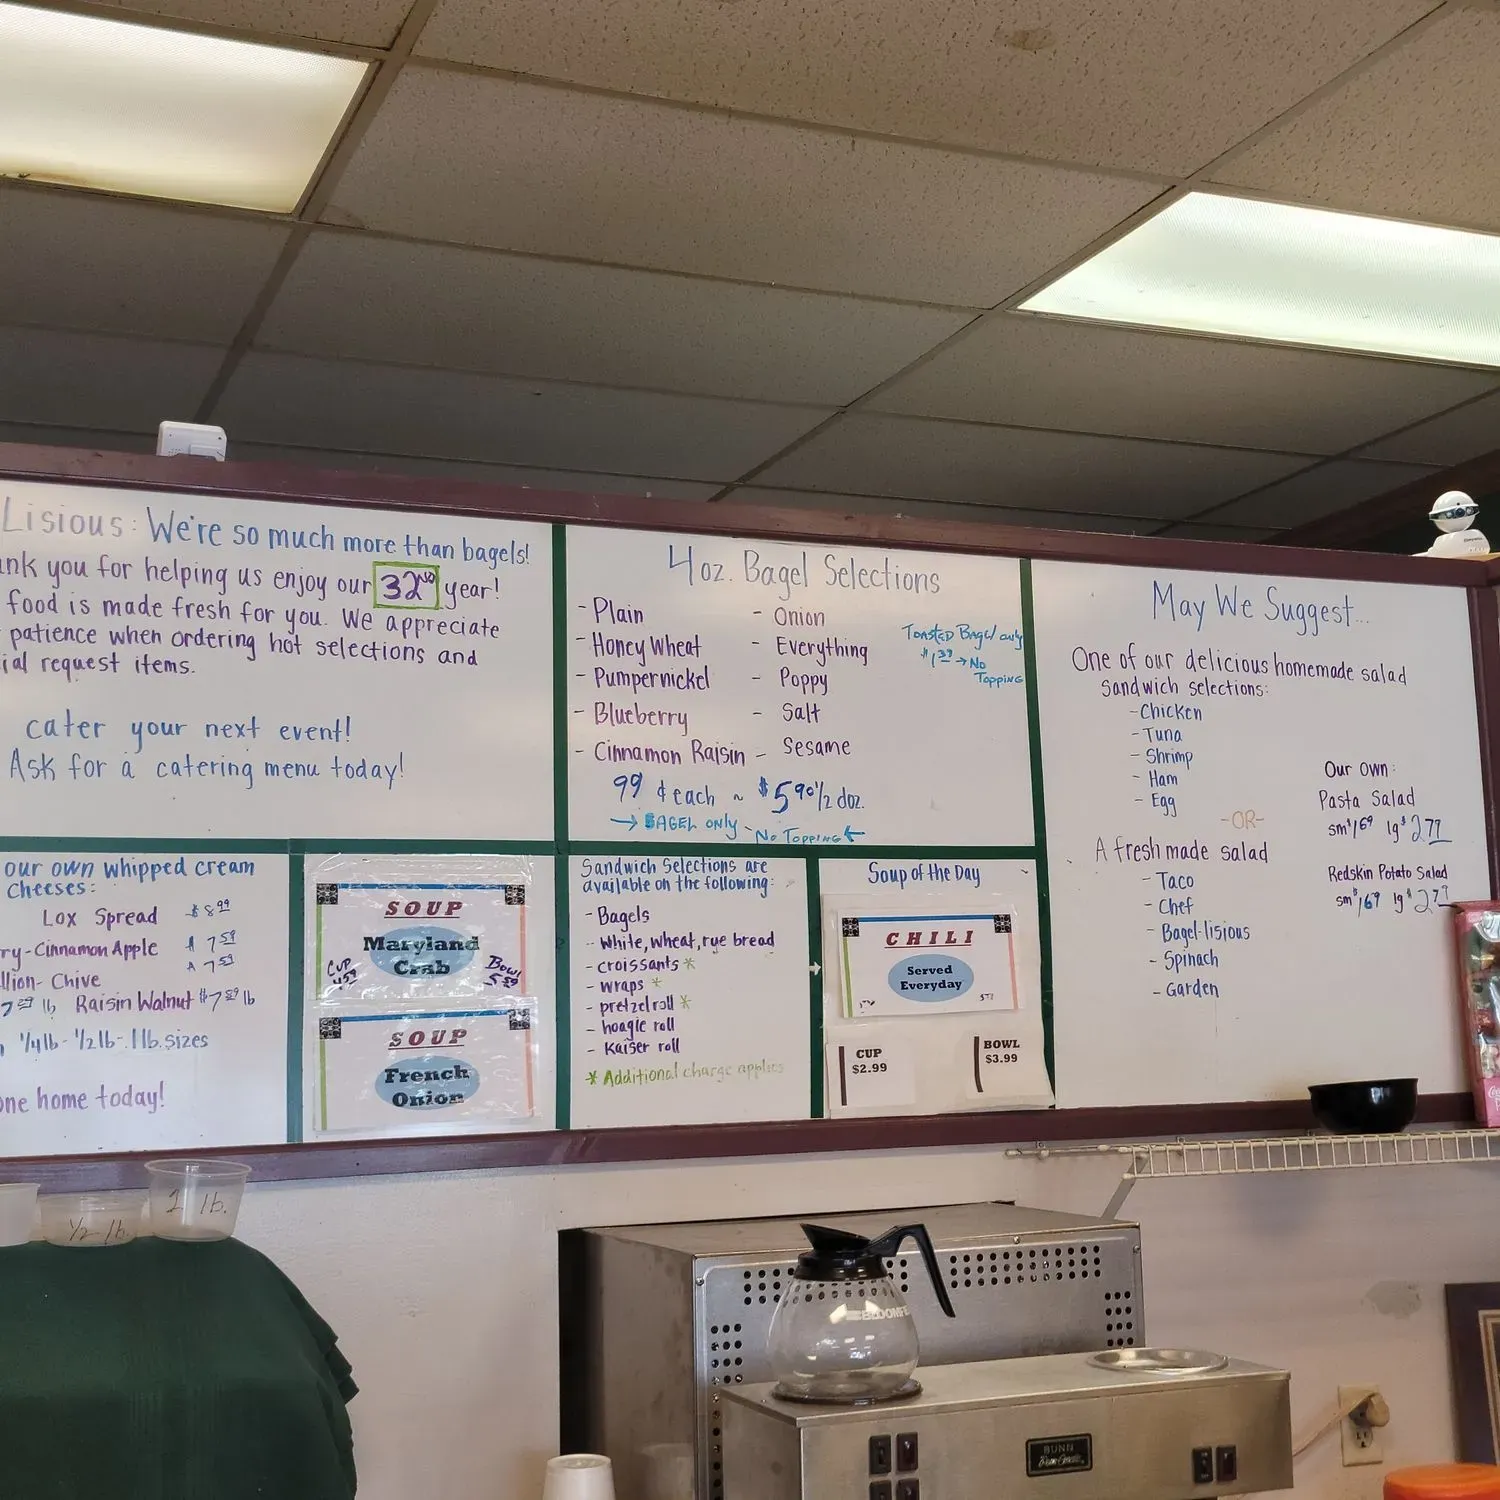 Lisious: We're so much more than bagels!
ank you for helping us enjoy our 32ND year!
food is made fresh for you. We appreciate
patience when ordering hot selections and
ial request items.
cater your next event!
Ask for a catering menu today!
4 oz. Bagel Selections
- Plain
- Honey Wheat
- Pumpernickel
- Blueberry
- Cinnamon Raisin
- Onion
- Everything
- Poppy
- Salt
- Sesame
Toasted Bagel only
$1.39 → No
Topping
99 ¢ each ~ $5.90 1/2 doz.
→ BAGEL only - No Topping ←
May We Suggest...
One of our delicious homemade salad
Sandwich selections:
- Chicken
- Tuna
- Shrimp
- Ham
- Egg
-OR-
A fresh made salad
- Taco
- Chef
- Bagel-lisious
- Spinach
- Garden
Our Own:
Pasta Salad
sm $1.69 lg $2.79
Redskin Potato Salad
sm $1.69 lg $2.79
our own whipped cream
cheeses:
Lox Spread $8.99
ry-Cinnamon Apple $7.59
$7.59
llion-Chive
lb Raisin Walnut lb
1/4 lb - 1/2 lb - 1 lb. sizes
one home today!
SOUP
Maryland
Crab
CUP
Bowl
5.59
SOUP
French
Onion
Sandwich Selections are
available on the following:
- Bagels
- White, wheat, rye bread
- croissants *
- wraps *
- pretzel roll *
- hoagie roll
- Kaiser roll
* Additional charge applies
Soup of the Day
CHILI
Served
Everyday
CUP
$2.99
BOWL
$3.99
1/2 lb.
1 lb.
BUNN